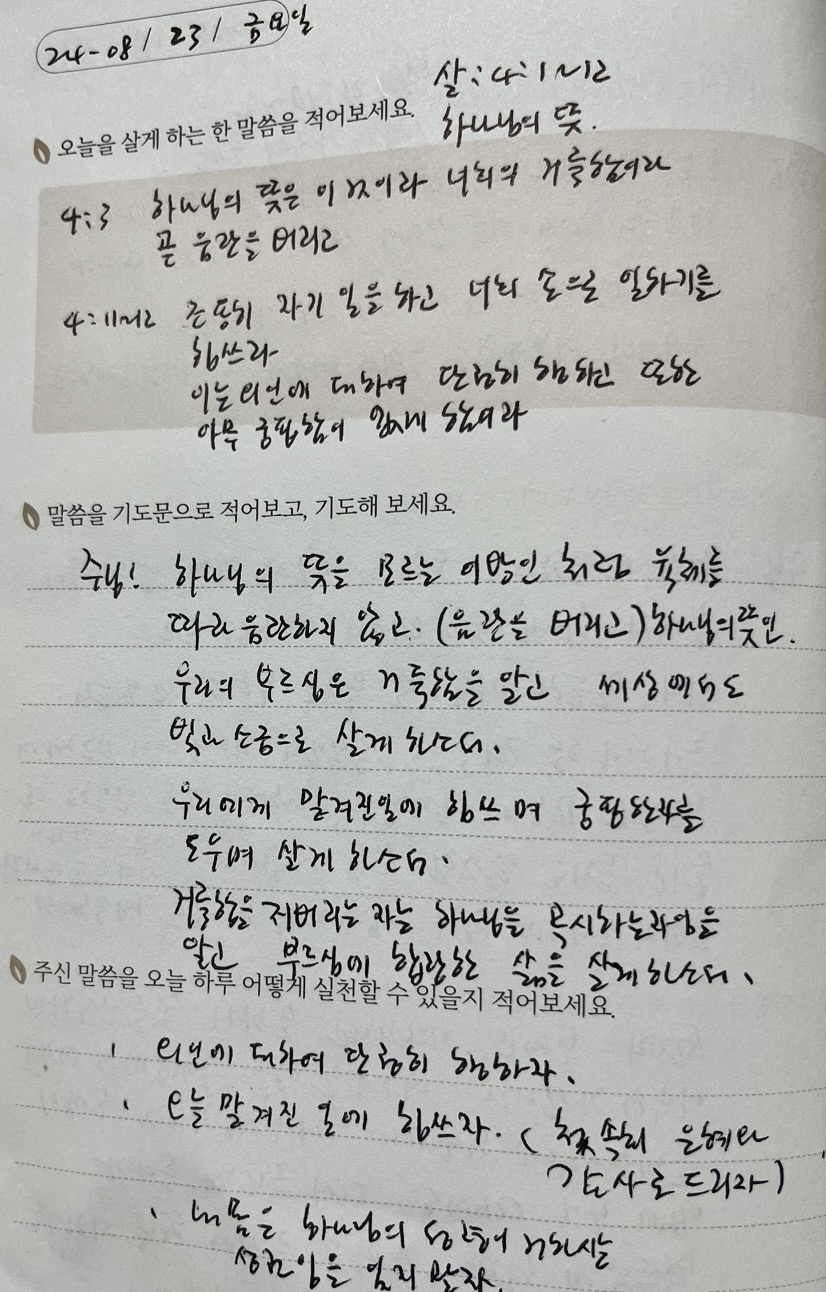 24-08/23/금요일
살:4:1~12
하나님의 뜻.
오늘을 살게 하는 한 말씀을 적어보세요.
4:3 하나님의 뜻은 이것이라 너희의 거룩함이라
곧 음란을 버리고
4:11~12 조용히 자기 일을 하고 너희 손으로 일하기를
힘쓰라
이는 외인에 대하여 단정히 행하고 또한
아무 궁핍함이 없게 함이라
말씀을 기도문으로 적어보고, 기도해 보세요.
주님! 하나님의 뜻을 모르는 이방인 처럼 육체를
따라 음란하지 않고. (음란을 버리고) 하나님의 뜻인.
우리의 부르심은 거룩함을 알고 세상에서도
빛과 소금으로 살게 하소서.
우리에게 맡겨진일에 힘쓰며 궁핍한자를
도우며 살게 하소서.
거룩함을 저버리는 자는 하나님을 멸시하는자임을
알고 부르심에 합당한 삶을 살게 하소서.
주신 말씀을 오늘 하루 어떻게 실천할 수 있을지 적어보세요.
· 외인에 대하여 단정히 행하자.
· 오늘 맡겨진 일에 힘쓰자. ( 속회 은혜와
감사로 드리자)
· 내 몸은 하나님의 성령이 거하시는
성전임을 잊지 말자.